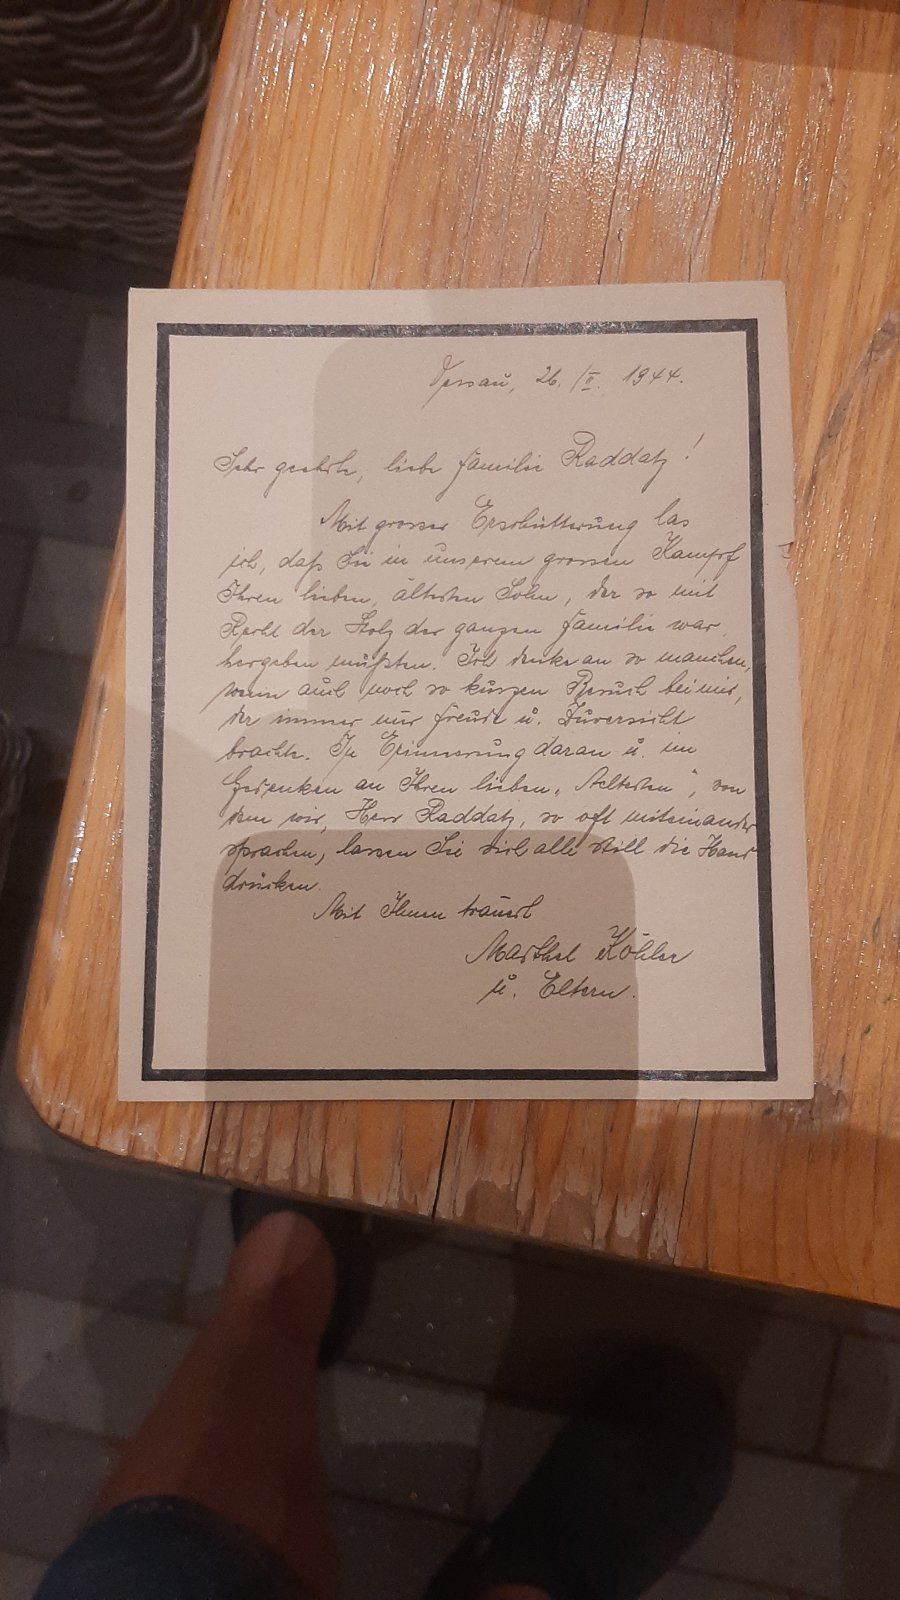 Dessau, 26. /II. 1944.
Sehr geehrte, liebe Familie Raddatz!
Mit grosser Erschütterung las
ich, daß Sie in unserem grossen Kampf
Ihren lieben, ältesten Sohn, der so mit
Recht der Stolz der ganzen Familie war,
hergeben mußten. Ich denke an so manchen,
wenn auch noch so kurzen Besuch bei mir,
der immer nur Freude u. Zuversicht
brachte. In Erinnerung daran u. im
Gedenken an Ihren lieben „Aeltesten", von
dem wir, Herr Raddatz, so oft miteinander
sprachen, lassen Sie sich alle still die Hand
drücken.
Mit Ihnen trauert
Marthel Köhler
u. Eltern.